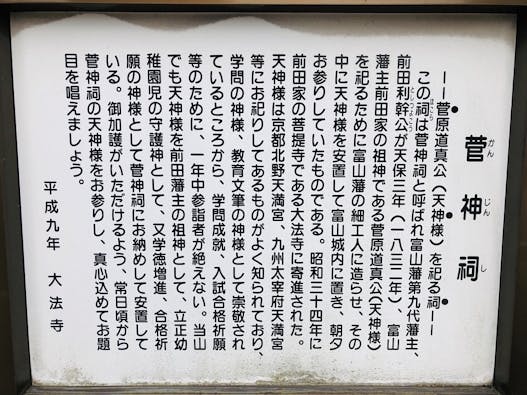 菅神祠
かんじんし
――菅原道真公（天神様）を祀る祠――
この祠は菅神祠と呼ばれ富山藩第九代藩主、
前田利幹公が天保三年（一八三二年）、富山
藩主前田家の祖神である菅原道真公（天神様）
を祀るために富山藩の細工人に造らせ、その
中に天神様を安置して富山城内に置き、朝夕
お参りしていたものである。昭和三十四年に
前田家の菩提寺である大法寺に寄進された。
天神様は京都北野天満宮、九州太宰府天満宮
等にお祀りしてあるものがよく知られており、
学問の神様、教育文筆の神様として崇敬され
ているところから、学問成就、入試合格祈願
等のために、一年中参詣者が絶えない。当山
でも天神様を前田藩主の祖神として、立正幼
稚園児の守護神として、又学徳増進、合格祈
願の神様として菅神祠にお納めして安置して
いる。御加護がいただけるよう、常日頃から
菅神祠の天神様をお参りし、真心込めてお題
目を唱えましょう。
平成九年　大法寺